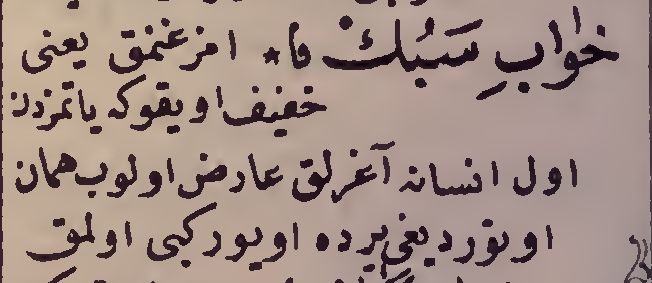 خوابِ سَبُكْ فا ٭ امزغنمق یعنی
خفیف اویقوکه یاتمزدن
اول انسانه آغرلق عارض اولوب همان
اوتوردیغی یرده اویور کبی اولمق